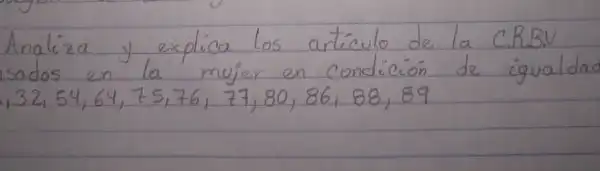 Analiza y explica los artículo de la C.R.B.V
sados en la mujer en condición de igualdad
, 32, 54, 64, 75, 76, 77, 80, 86, 88, 89